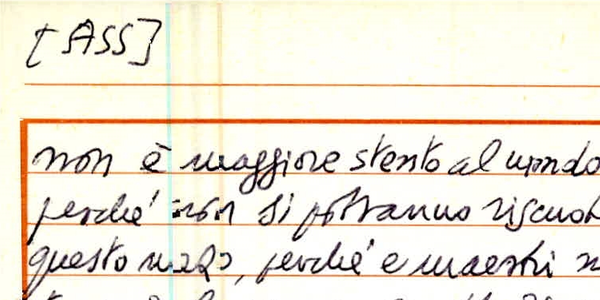 [ASS]
non è maggiore stento al mondo
perché non si potranno
questo perché e maestri